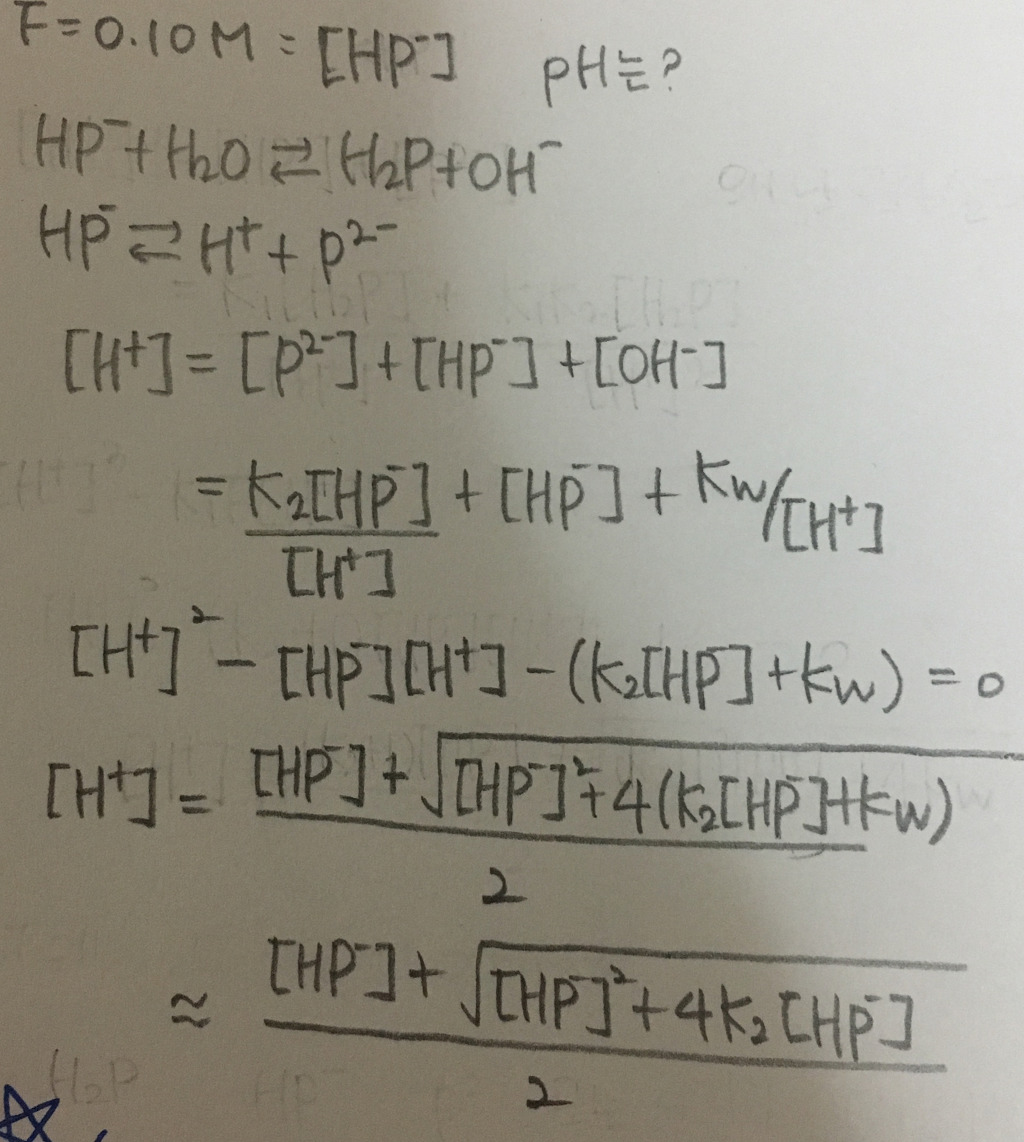 F=0.10M = [HP⁻] pH는?
HP⁻+H₂O ⇄ H₂P+OH⁻
HP⁻ ⇄ H⁺ + P²⁻
[H⁺] = [P²⁻] + [HP⁻] + [OH⁻]
= K₂[HP⁻]/[H⁺] + [HP⁻] + Kw/[H⁺]
[H⁺]² - [HP⁻][H⁺] - (K₂[HP⁻] + Kw) = 0
[H⁺] = ([HP⁻] + √([HP⁻]² + 4(K₂[HP⁻]+Kw)))/2
≈ ([HP⁻] + √([HP⁻]² + 4K₂[HP⁻]))/2
H₂P HP⁻